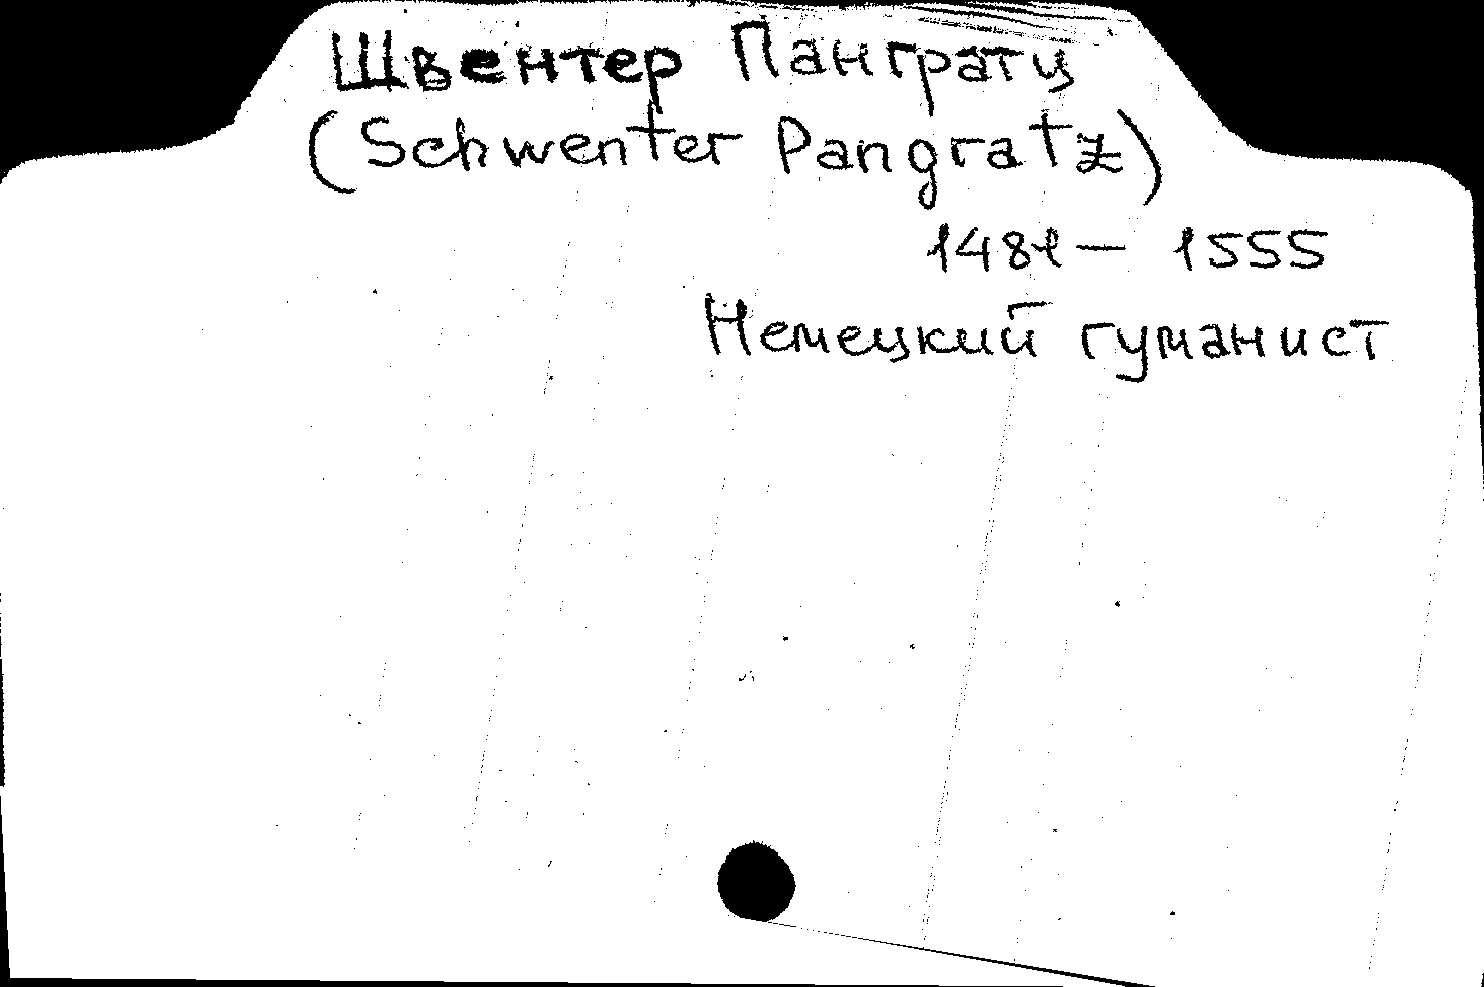 Швентер Пангратц
(Schwenter Pangratz)
1481 — 1555
Немецкий гуманист